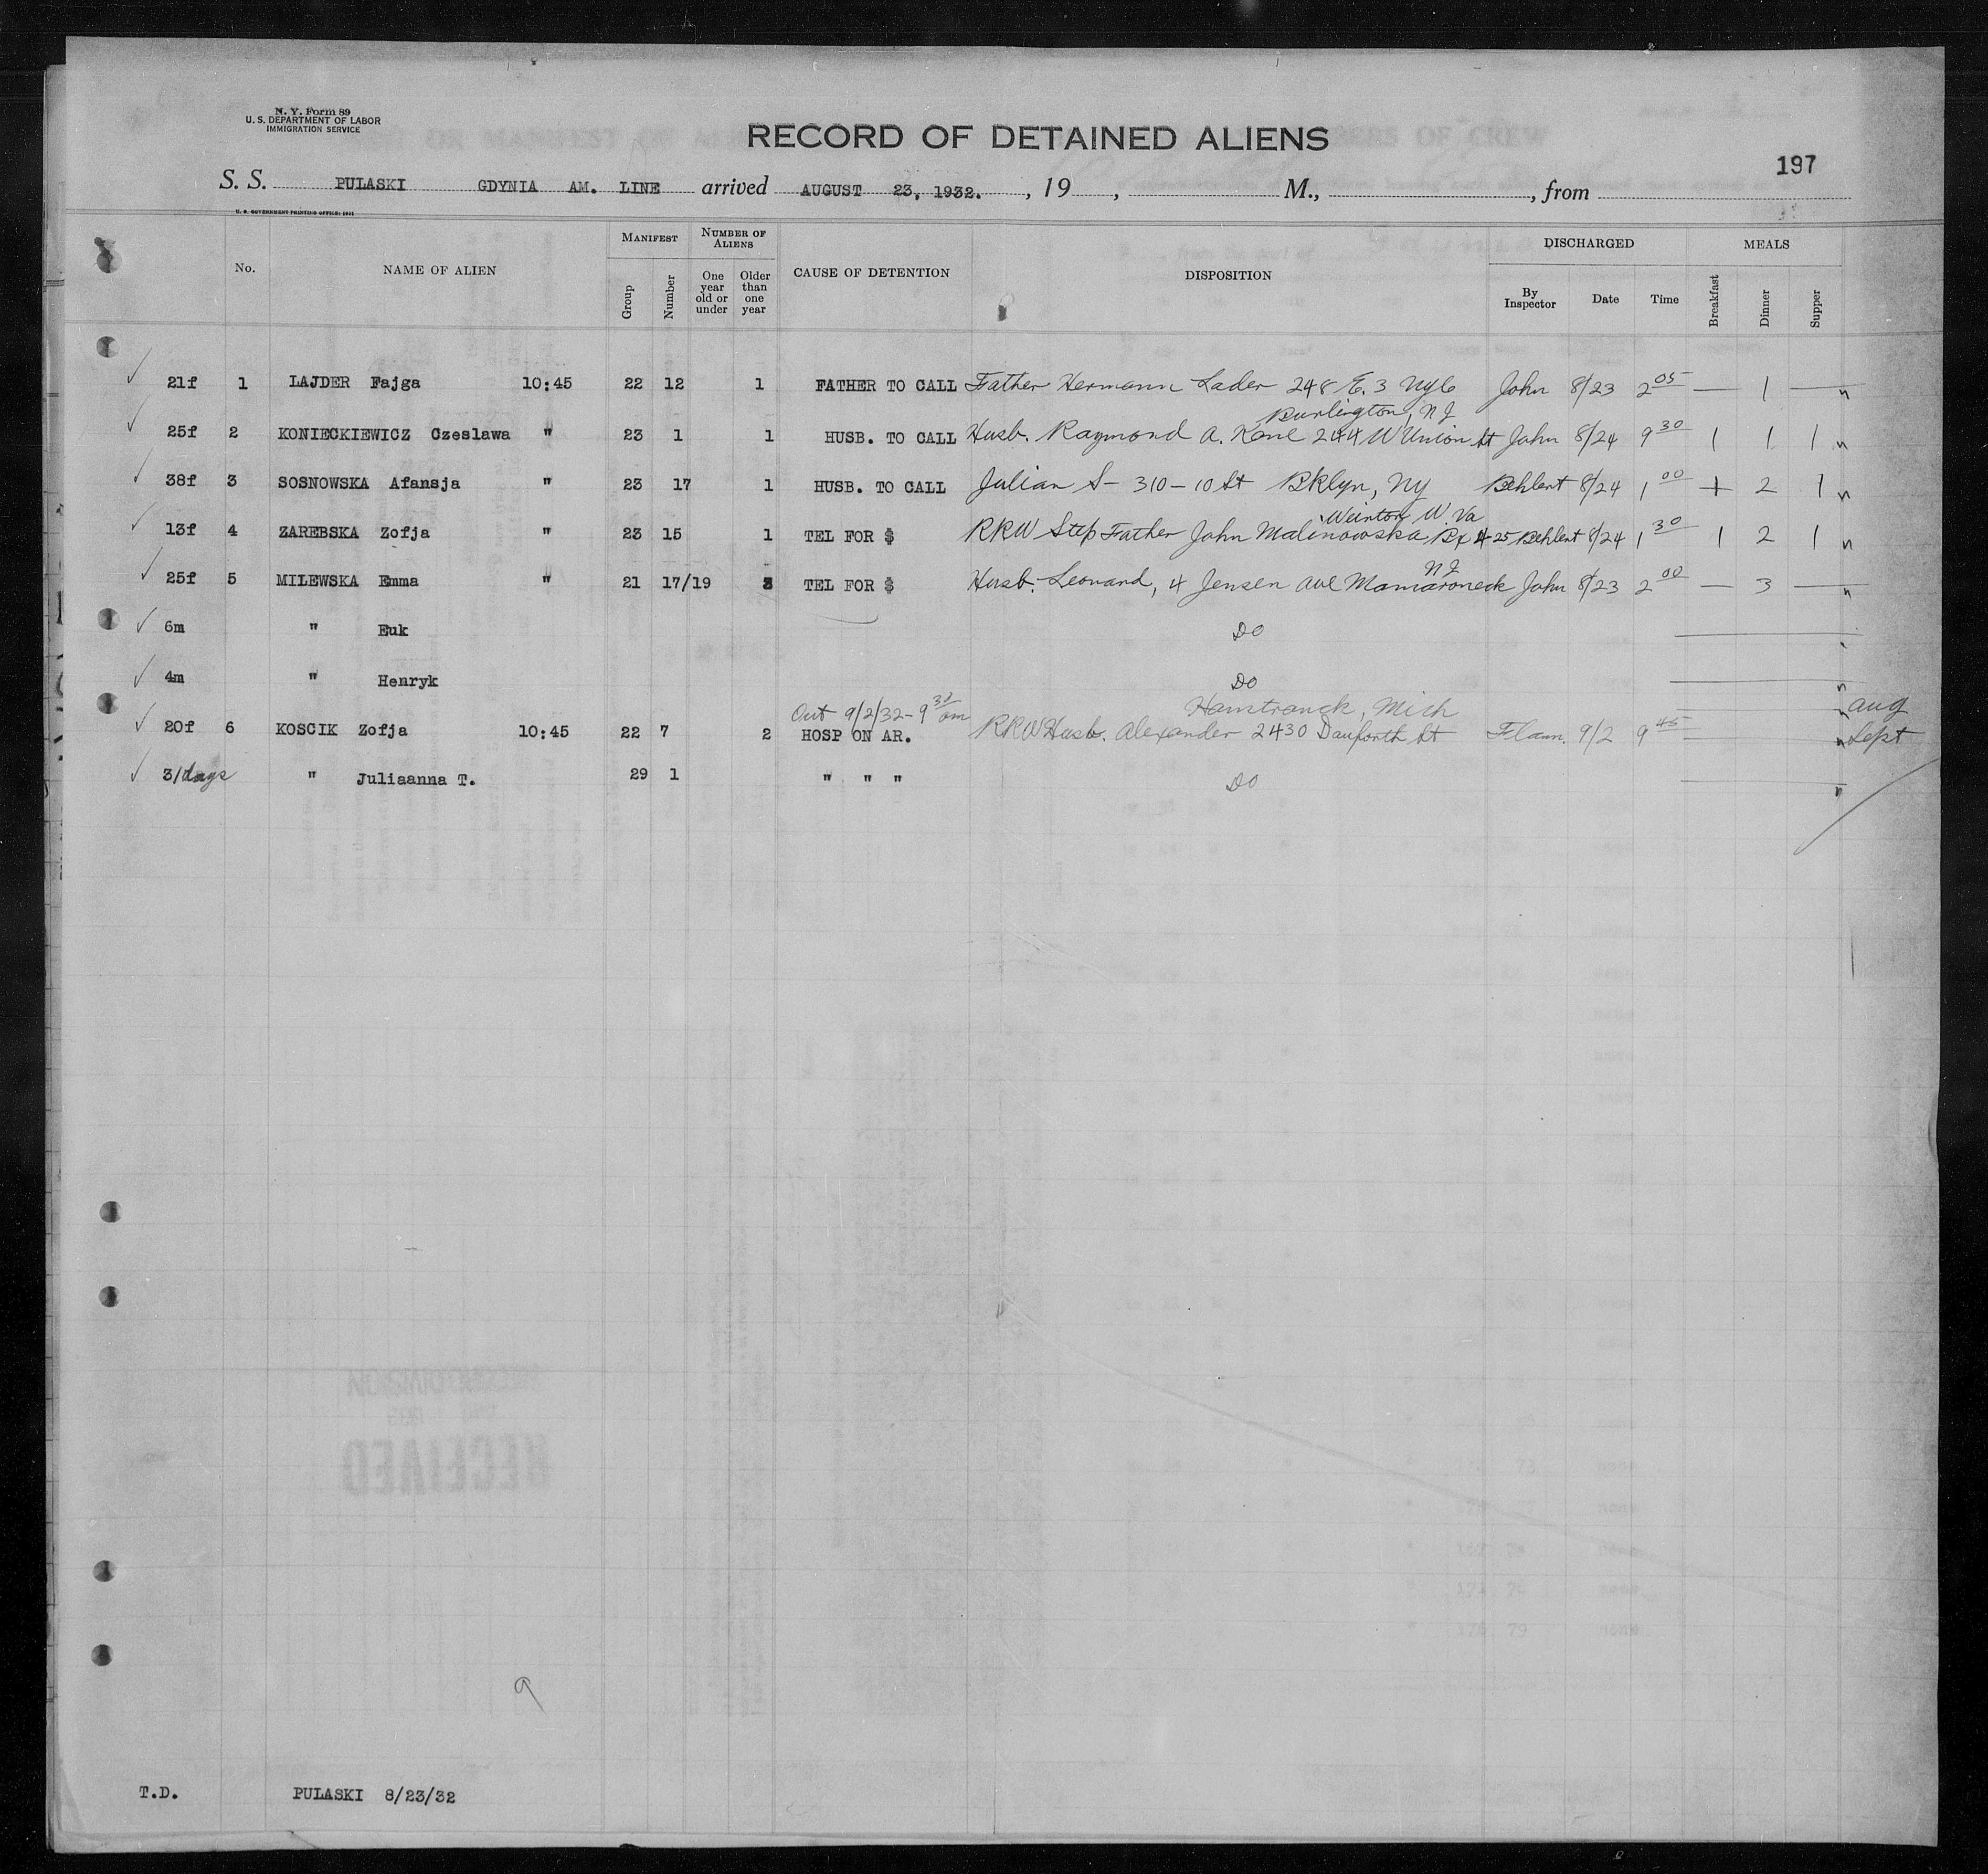 N. Y. Form 89
U. S. DEPARTMENT OF LABOR
IMMIGRATION SERVICE
RECORD OF DETAINED ALIENS
197
S. S. PULASKI GDYNIA AM. LINE arrived AUGUST 23, 1932. , 19 , M., , from
U. S. GOVERNMENT PRINTING OFFICE: 1931
No. NAME OF ALIEN MANIFEST NUMBER OF ALIENS CAUSE OF DETENTION DISPOSITION DISCHARGED MEALS
Group Number One year old or under Older than one year By Inspector Date Time Breakfast Dinner Supper
21f 1 LAJDER Fajga 10:45 22 12 1 FATHER TO CALL Father Hermann Lader 248 E. 3 NYC John 8/23 2 05 — 1 —
Burlington, NJ
25f 2 KONIECKIEWICZ Czeslawa " 23 1 1 HUSB. TO CALL Husb. Raymond A. Kane 244 W Union St John 8/24 9 30 1 1 1
38f 3 SOSNOWSKA Afansja " 23 17 1 HUSB. TO CALL Julian S - 310 - 10 St Bklyn, NY Behlert 8/24 1 00 1 2 1
Weirton W. Va
13f 4 ZAREBSKA Zofja " 23 15 1 TEL FOR $ RRW Step Father John Malinowska Bx 425 Behlert 8/24 1 30 1 2 1
NJ
25f 5 MILEWSKA Emma " 21 17/19 3 TEL FOR $ Husb. Leonard, 4 Jensen Ave Mamaroneck John 8/23 2 00 — 3 —
6m " Euk DO
4m " Henryk DO
Out 9/2/32 - 9 30 am Hamtramck, Mich Aug
20f 6 KOSCIK Zofja 10:45 22 7 2 HOSP ON AR. RRW Husb. Alexander 2430 Danforth St Flann. 9/2 9 45 Sept
31 days " Juliaanna T. 29 1 " " " DO
9
T.D. PULASKI 8/23/32